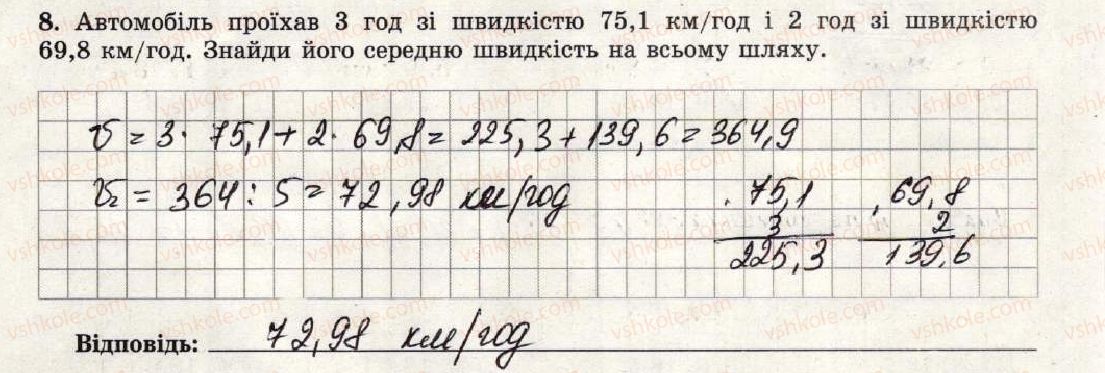 8. Автомобіль проїхав 3 год зі швидкістю 75,1 км/год і 2 год зі швидкістю
69,8 км/год. Знайди його середню швидкість на всьому шляху.
v = 3 · 75,1 + 2 · 69,8 = 225,3 + 139,6 = 364,9
v₂ = 364 : 5 = 72,98 км/год
75,1 69,8
3 2
225,3 139,6
Відповідь: 72,98 км/год
vshkole.com